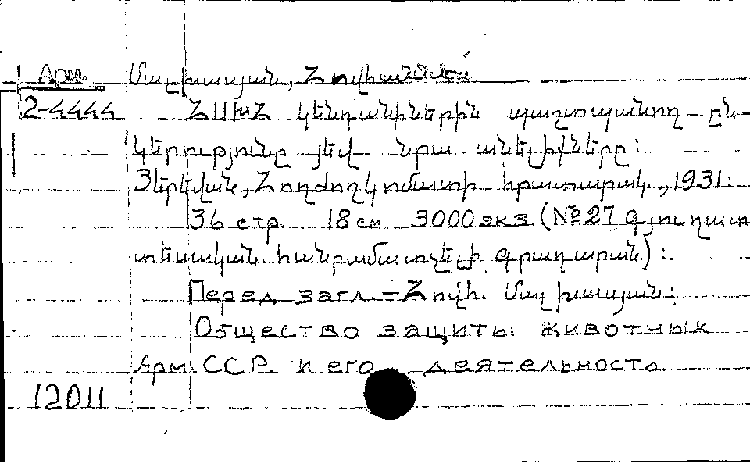 Арм. Մալխասյան, Հովհաննես
2-4444 ՀՍԽՀ կենդանիներին պաշտպանող ըն-
կերությունը յեվ նրա անելիքները:
Յերեվան, Հողժողկոմատի հրատարակ., 1931.
36 стр. 18 см 3000 экз (№ 27 գյուղատն
տեսական հանրամատչելի գրադարան):
Перед загл. – Հովհ. Մալխասյան:
Общество защиты животных
Арм. ССР и его деятельность
12011